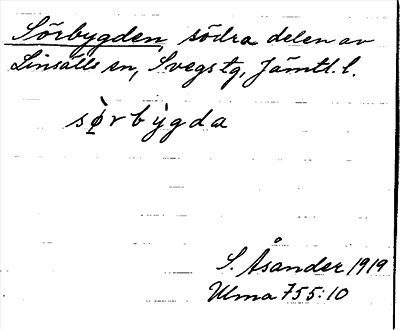 Sörbygden, södra delen av
Linsälls sn, Svegs tg, Jämtl. l.
sø̀rby̍gda
S. Åsander 1919
Ulma 755:10